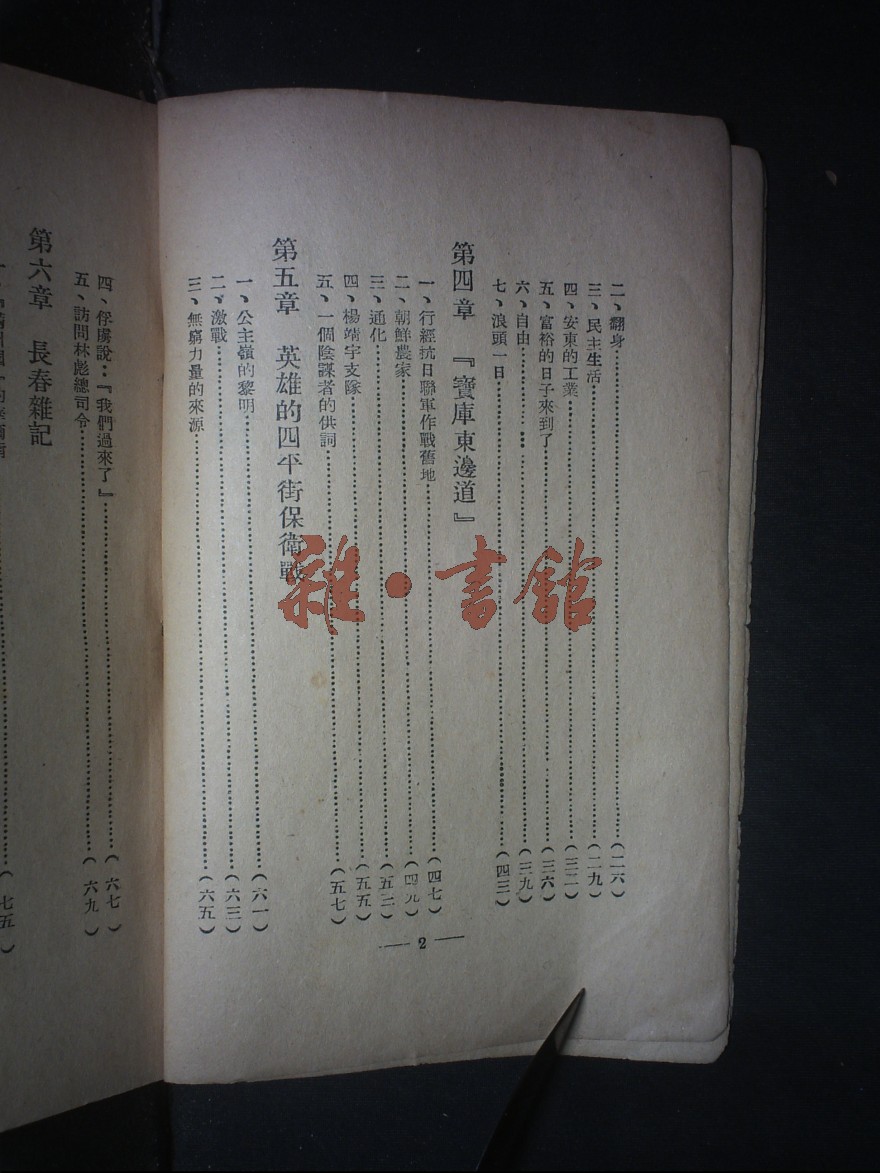 二、翻身……(二六)
三、民主生活……(二九)
四、安東的工業……(三二)
五、富裕的日子來到了……(三六)
六、自由……(三九)
七、浪頭一日……(四三)
第四章 『寶庫東邊道』
一、行經抗日聯軍作戰舊地……(四七)
二、朝鮮農家……(四九)
三、通化……(五二)
四、楊靖宇支隊……(五五)
五、一個陰謀者的供詞……(五七)
第五章 英雄的四平街保衛戰
一、公主嶺的黎明……(六一)
二、激戰……(六三)
三、無窮力量的來源……(六五)
— 2 —
四、俘虜說:『我們過來了』……(六七)
五、訪問林彪總司令……(六九)
第六章 長春雜記
(七五)
雜·書館